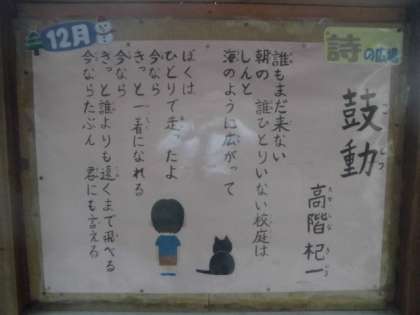 12月
詩の広場
鼓動
高階杞一
誰もまだ来ない
朝の 誰ひとりいない校庭は
しんと
海のように広がって
ぼくは
ひとりで走ったよ
今なら
きっと一着になれる
今なら
きっと誰よりも遠くまで飛べる
今ならたぶん 君にも言える